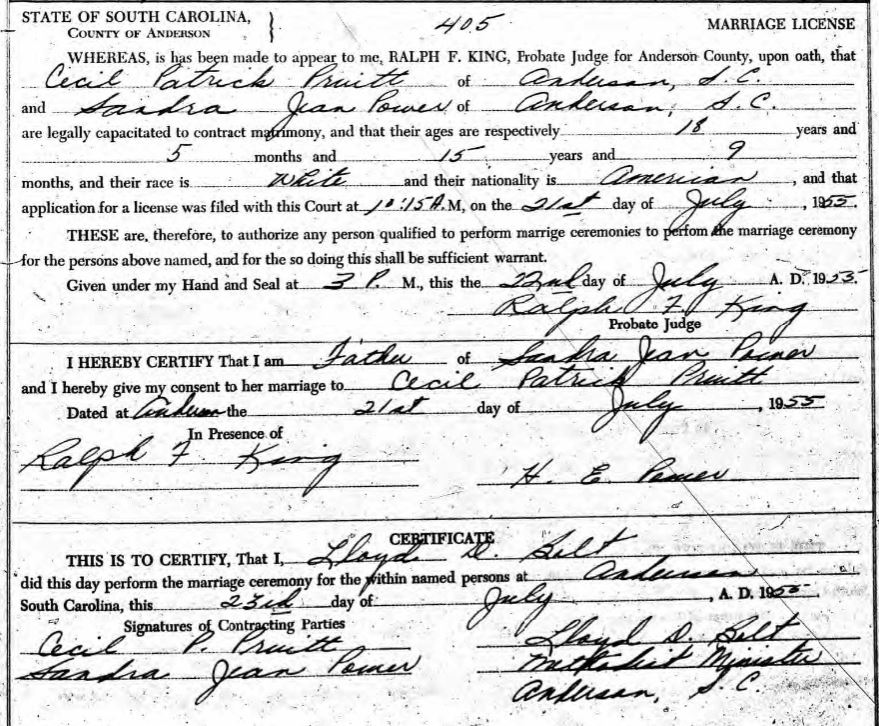 STATE OF SOUTH CAROLINA, } 405 MARRIAGE LICENSE
COUNTY OF ANDERSON
WHEREAS, is has been made to appear to me, RALPH F. KING, Probate Judge for Anderson County, upon oath, that
Cecil Patrick Pruitt of Anderson, S.C.
and Sandra Jean Power of Anderson, S.C.
are legally capacitated to contract matrimony, and that their ages are respectively 18 years and
5 months and 15 years and 9
months, and their race is White and their nationality is American, and that
application for a license was filed with this Court at 10:15 A.M, on the 21st day of July, 1955.
THESE are, therefore, to authorize any person qualified to perform marrige ceremonies to perfom the marriage ceremony
for the persons above named, and for the so doing this shall be sufficient warrant.
Given under my Hand and Seal at 3 P. M., this the 22nd day of July A. D. 1955.
Ralph F. King
Probate Judge
I HEREBY CERTIFY That I am Father of Sandra Jean Power
and I hereby give my consent to her marriage to Cecil Patrick Pruitt
Dated at Anderson the 21st day of July, 1955
In Presence of
Ralph F King
H. E. Power
CERTIFICATE
THIS IS TO CERTIFY, That I, Lloyd D. Bolt
did this day perform the marriage ceremony for the within named persons at Anderson
South Carolina, this 23rd day of July, A. D. 1955.
Signatures of Contracting Parties
Cecil P. Pruitt Lloyd D. Bolt
Sandra Jean Power Methodist Minister
Anderson, S.C.